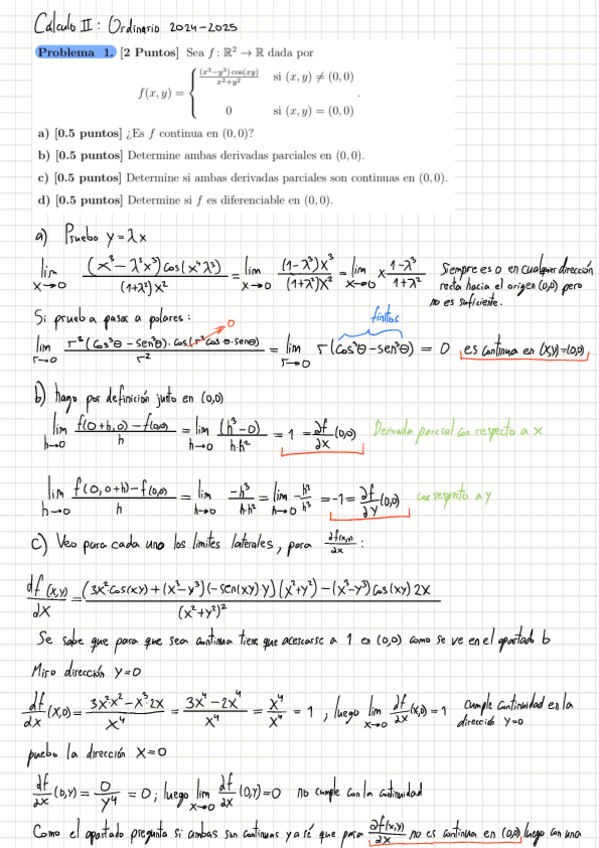 Cálculo II: Ordinario 2024-2025
Problema 1. [2 Puntos] Sea f : ℝ² → ℝ dada por
f(x, y) = { (x³−y³) cos(xy) / x²+y² si (x, y) ≠ (0, 0)
0 si (x, y) = (0, 0) .
a) [0.5 puntos] ¿Es f continua en (0, 0)?
b) [0.5 puntos] Determine ambas derivadas parciales en (0, 0).
c) [0.5 puntos] Determine si ambas derivadas parciales son continuas en (0, 0).
d) [0.5 puntos] Determine si f es diferenciable en (0, 0).
a) Pruebo y=λx
lim x→0 (x³−λ³x³)cos(x⁴λ³) / (1+λ²)x² = lim x→0 (1−λ³)x³ / (1+λ²)x² = lim x→0 x (1−λ³)/(1+λ²) Siempre es 0 en cualquier dirección
recta hacia el origen (0,0) pero
no es suficiente.
Si prueba pasar a polares: 0 finitos
lim r→0 r³(cos³θ − sen³θ)·cos(r²cosθ·senθ) / r² = lim r→0 r(cos³θ−sen³θ) = 0 es continua en (x,y)=(0,0)
b) hago por definición justo en (0,0)
lim h→0 f(0+h,0)−f(0,0) / h = lim h→0 (h³−0) / h·h² = 1 = ∂f/∂x (0,0) Derivada parcial con respecto a x
lim h→0 f(0,0+h)−f(0,0) / h = lim h→0 −h³ / h·h² = lim h→0 −h³/h³ = −1 = ∂f/∂y (0,0) con respecto a y
c) Veo para cada uno los limites laterales, para ∂f(x,y)/∂x :
df/dx (x,y) = (3x²cos(xy)+(x³−y³)(−sen(xy)·y)(x²+y²)−(x³−y³)cos(xy)2x / (x²+y²)²
Se sabe que para que sea continua tiene que acercarse a 1 en (0,0) como se ve en el apartado b
Miro dirección y=0
df/dx (x,0) = 3x²x²−x³·2x / x⁴ = 3x⁴−2x⁴ / x⁴ = x⁴/x⁴ = 1 , luego lim x→0 ∂f/∂x (x,0)=1 cumple continuidad en la
dirección y=0
puebo la dirección x=0
df/∂x (0,y) = 0/y⁴ = 0; luego lim x→0 df/∂x (0,y)=0 no cumple con la continuidad
Como el apartado pregunta si ambas son continuas ya sé que para ∂f(x,y)/∂x no es continua en (0,0) luego con una